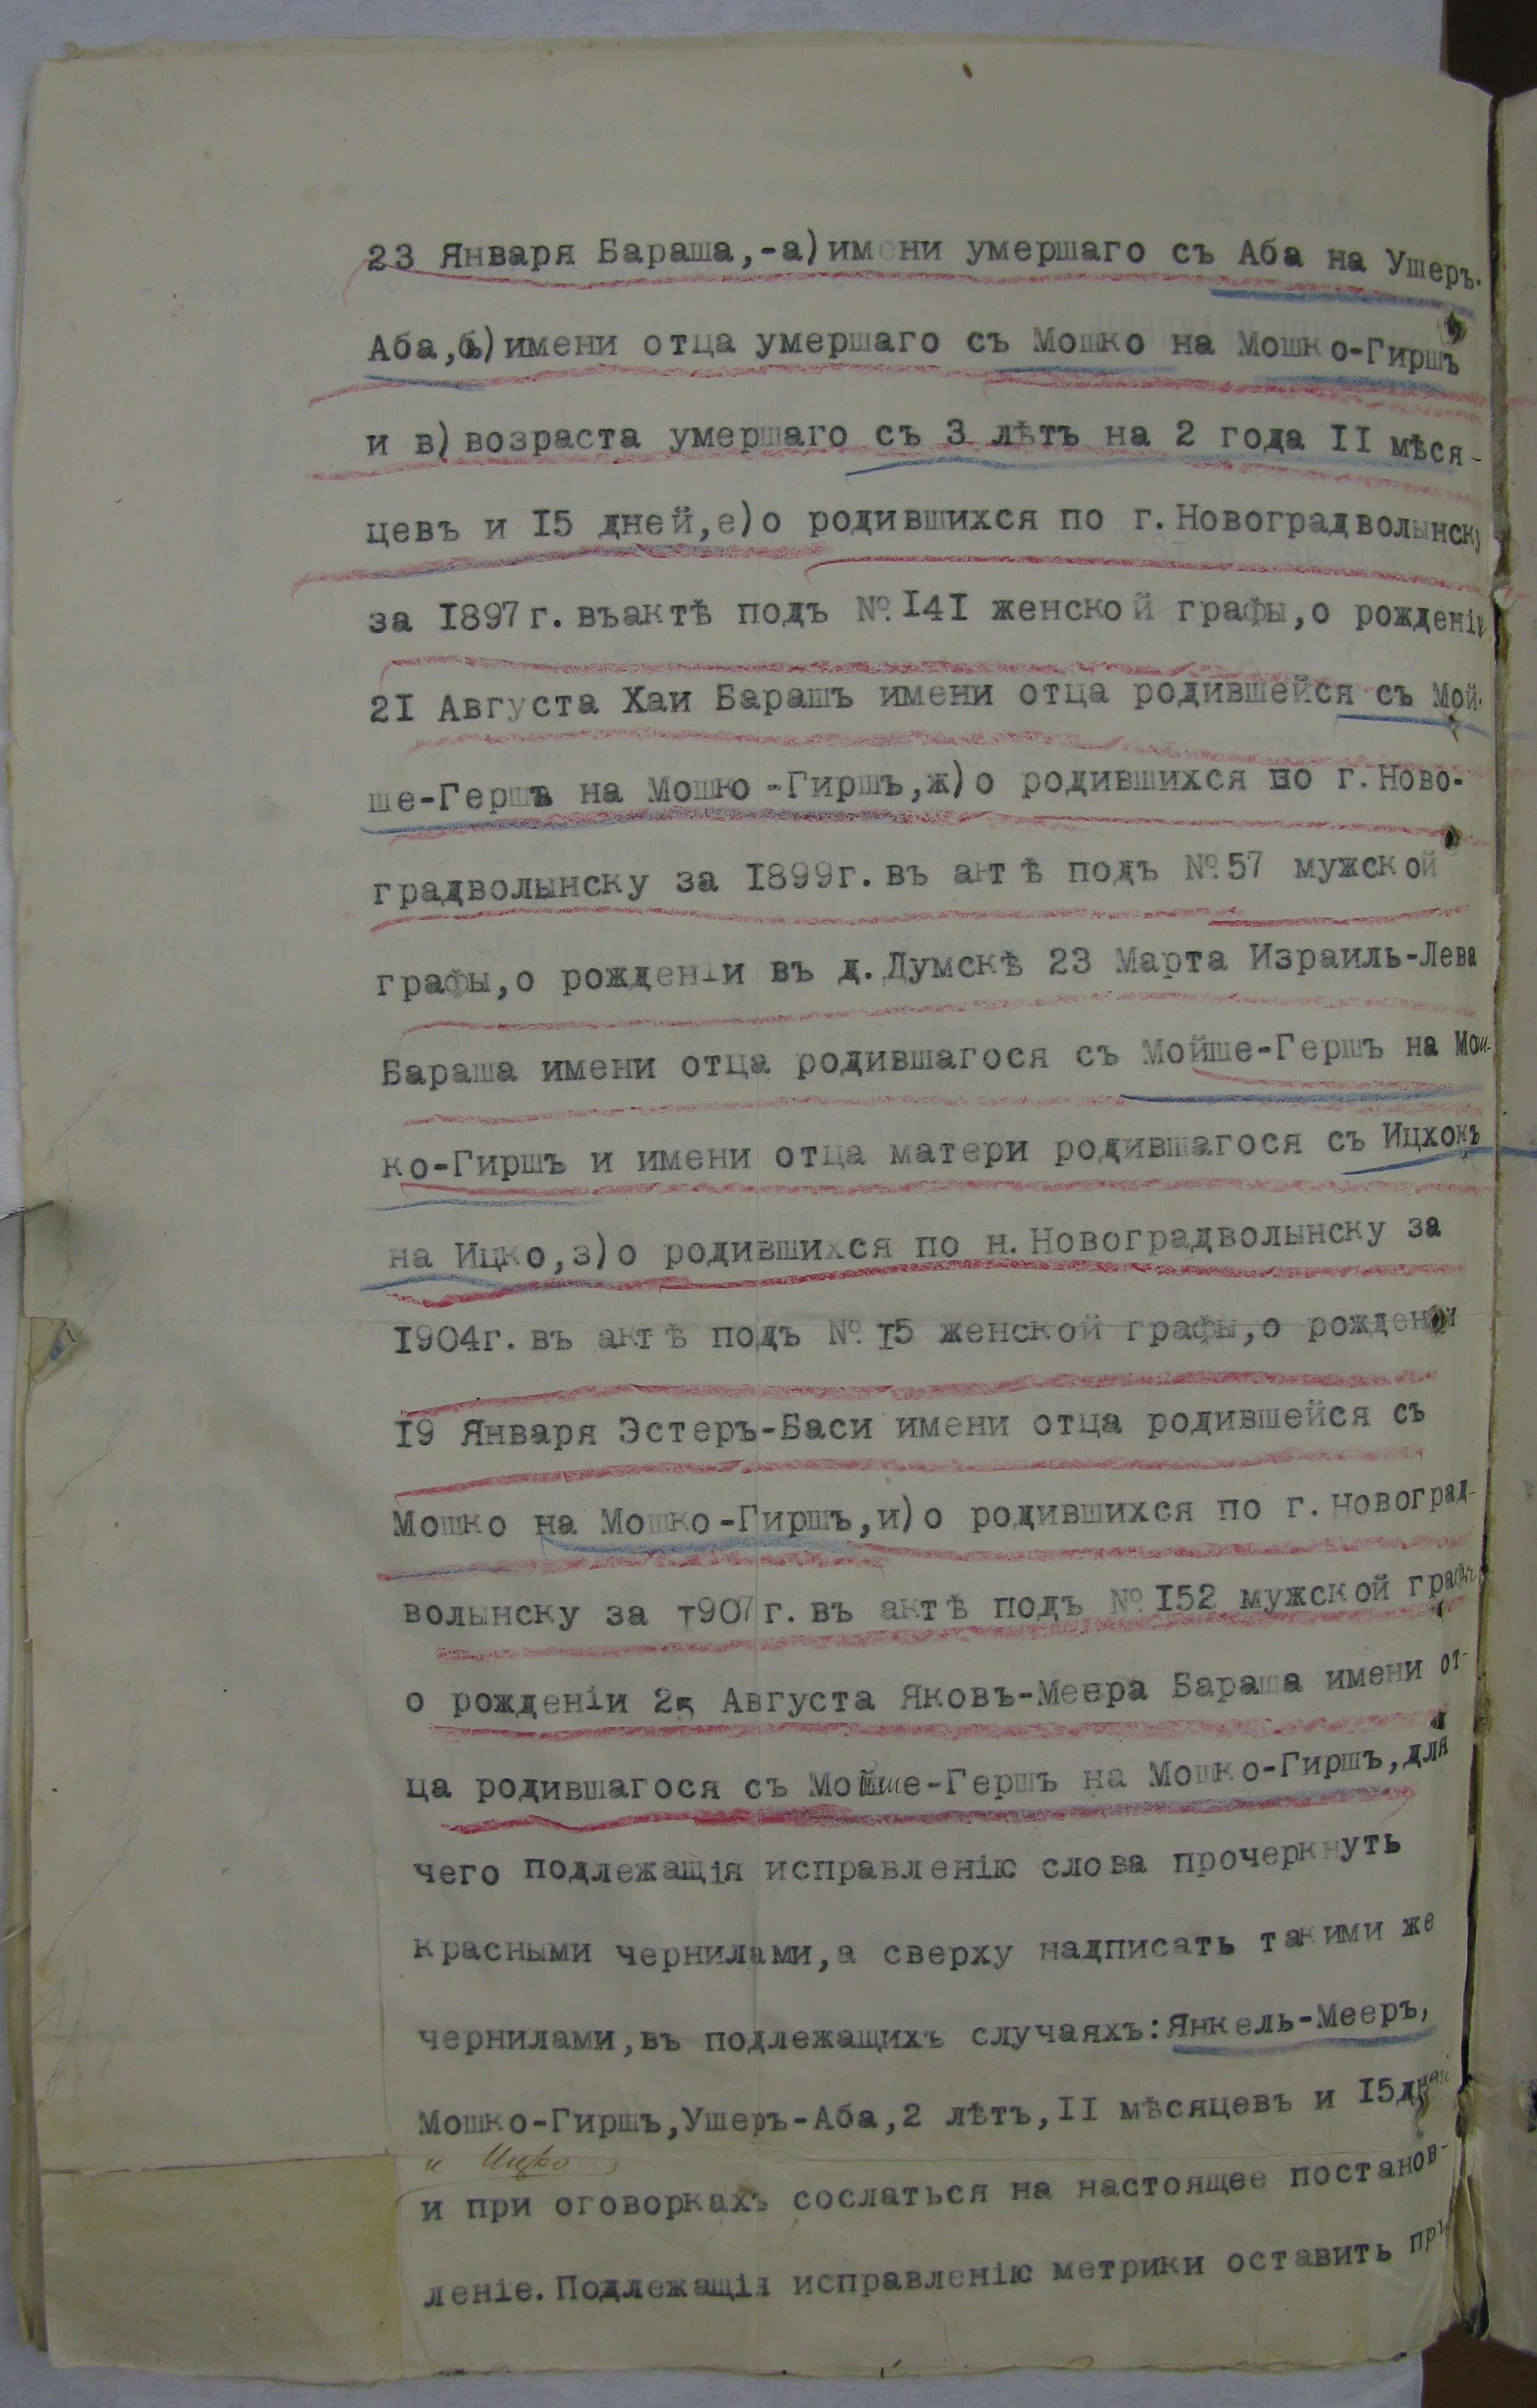 23 Января Бараша,-а)имени умершаго съ Аба на Ушеръ-
Аба,б)имени отца умершаго съ Мошко на Мошко-Гиршъ
и в)возраста умершаго съ 3 лѣтъ на 2 года II мѣся-
цевъ и I5 дней,е)о родившихся по г.Новоградволынску
за I897г.въактѣ подъ №.I4I женской графы,о рожденіи
2I Августа Хаи Барашъ имени отца родившейся съ Мой-
ше-Гершъ на Мошко-Гиршъ,ж)о родившихся по г.Ново-
градволынску за I899г.въ актѣ подъ №.57 мужской
графы,о рожденіи въ д.Думскѣ 23 Марта Израиль-Лева
Бараша имени отца родившагося съ Мойше-Гершъ на Мош-
ко-Гиршъ и имени отца матери родившагося съ Ицхокъ
на Ицко,з)о родившихся по н.Новоградволынску за
I904г.въ актѣ подъ №.I5 женской графы,о рожденіи
I9 Января Эстеръ-Баси имени отца родившейся съ
Мошко на Мошко-Гиршъ,и)о родившихся по г.Новоград-
волынску за I907г.въ актѣ подъ №I52 мужской графы
о рожденіи 25 Августа Яковъ-Меера Бараша имени от-
ца родившагося съ Мойше-Гершъ на Мошко-Гиршъ,для
чего подлежащія исправленію слова прочеркнуть
красными чернилами,а сверху надписать такими же
чернилами,въ подлежащихъ случаяхъ:Янкель-Мееръ,
Мошко-Гиршъ,Ушеръ-Аба,2 лѣтъ,II мѣсяцевъ и I5дней
и Ицко
и при оговоркахъ сослаться на настоящее постанов-
леніе.Подлежащія исправленію метрики оставить при